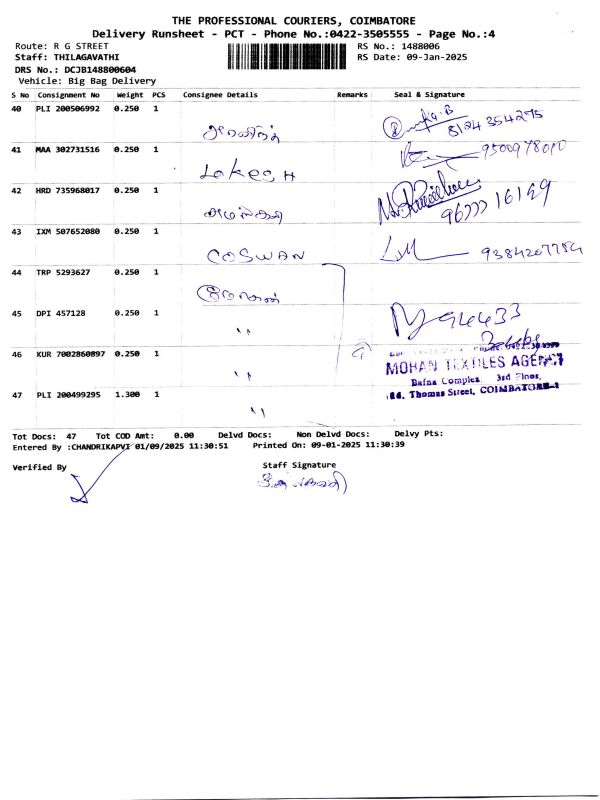 THE PROFESSIONAL COURIERS, COIMBATORE
Delivery Runsheet - PCT - Phone No.:0422-3505555 - Page No.:4
Route: R G STREET RS No.: 1488006
Staff: THILAGAVATHI RS Date: 09-Jan-2025
DRS No.: DCJB148800604
Vehicle: Big Bag Delivery
S No Consignment No Weight PCS Consignee Details Remarks Seal & Signature
40 PLI 200506992 0.250 1
8124354275
41 MAA 302731516 0.250 1
Lokesh 9500978010
42 HRD 735968017 0.250 1
43 IXM 507652080 0.250 1
COSWAN 9384207784
44 TRP 5293627 0.250 1
45 DPI 457128 0.250 1
" 94433
46 KUR 7002860897 0.250 1
" MOHAN TEXTILES AGENCY
Bafna Complex, 3rd Floor,
47 PLI 200499295 1.300 1
184, Thomas Street, COIMBATORE-1
"
Tot Docs: 47 Tot COD Amt: 0.00 Delvd Docs: Non Delvd Docs: Delvy Pts:
Entered By :CHANDRIKAPVI 01/09/2025 11:30:51 Printed On: 09-01-2025 11:30:39
Verified By Staff Signature